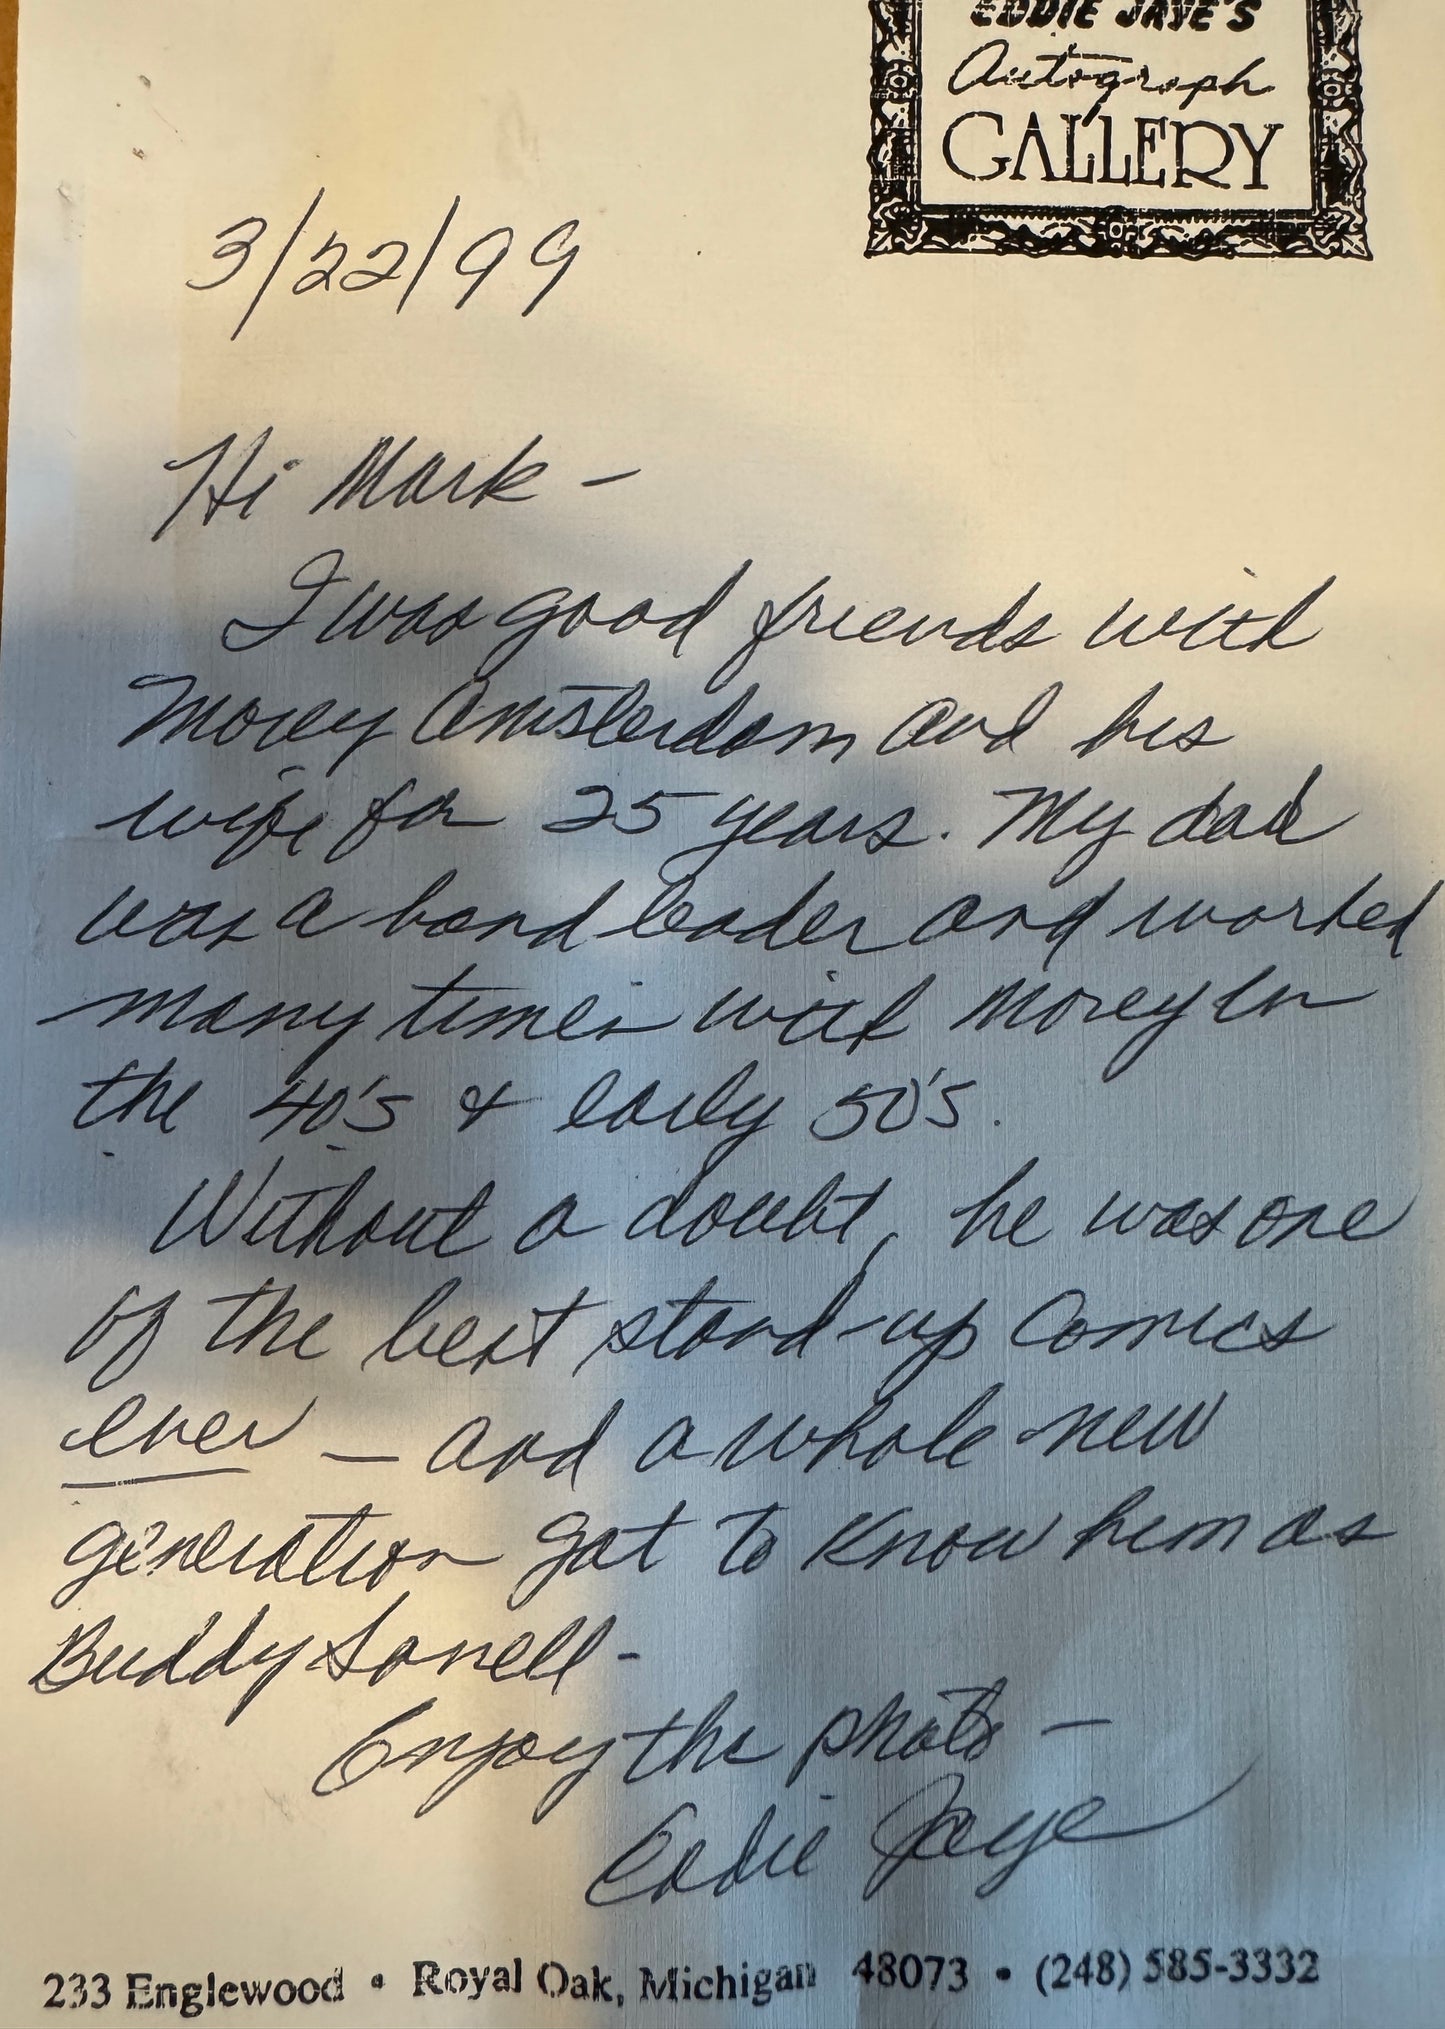 EDDIE JAYE'S
Autograph
GALLERY
3/22/99
Hi Mark -
I was good friends with
Morey Amsterdam and his
wife for 25 years. My dad
was a band leader and worked
many times with Morey in
the 40's & early 50's.
Without a doubt, he was one
of the best stand-up comics
ever — and a whole new
generation got to know him as
Buddy Sorrell -
Enjoy the photo —
Eddie Jaye
233 Englewood • Royal Oak, Michigan 48073 • (248) 585-3332